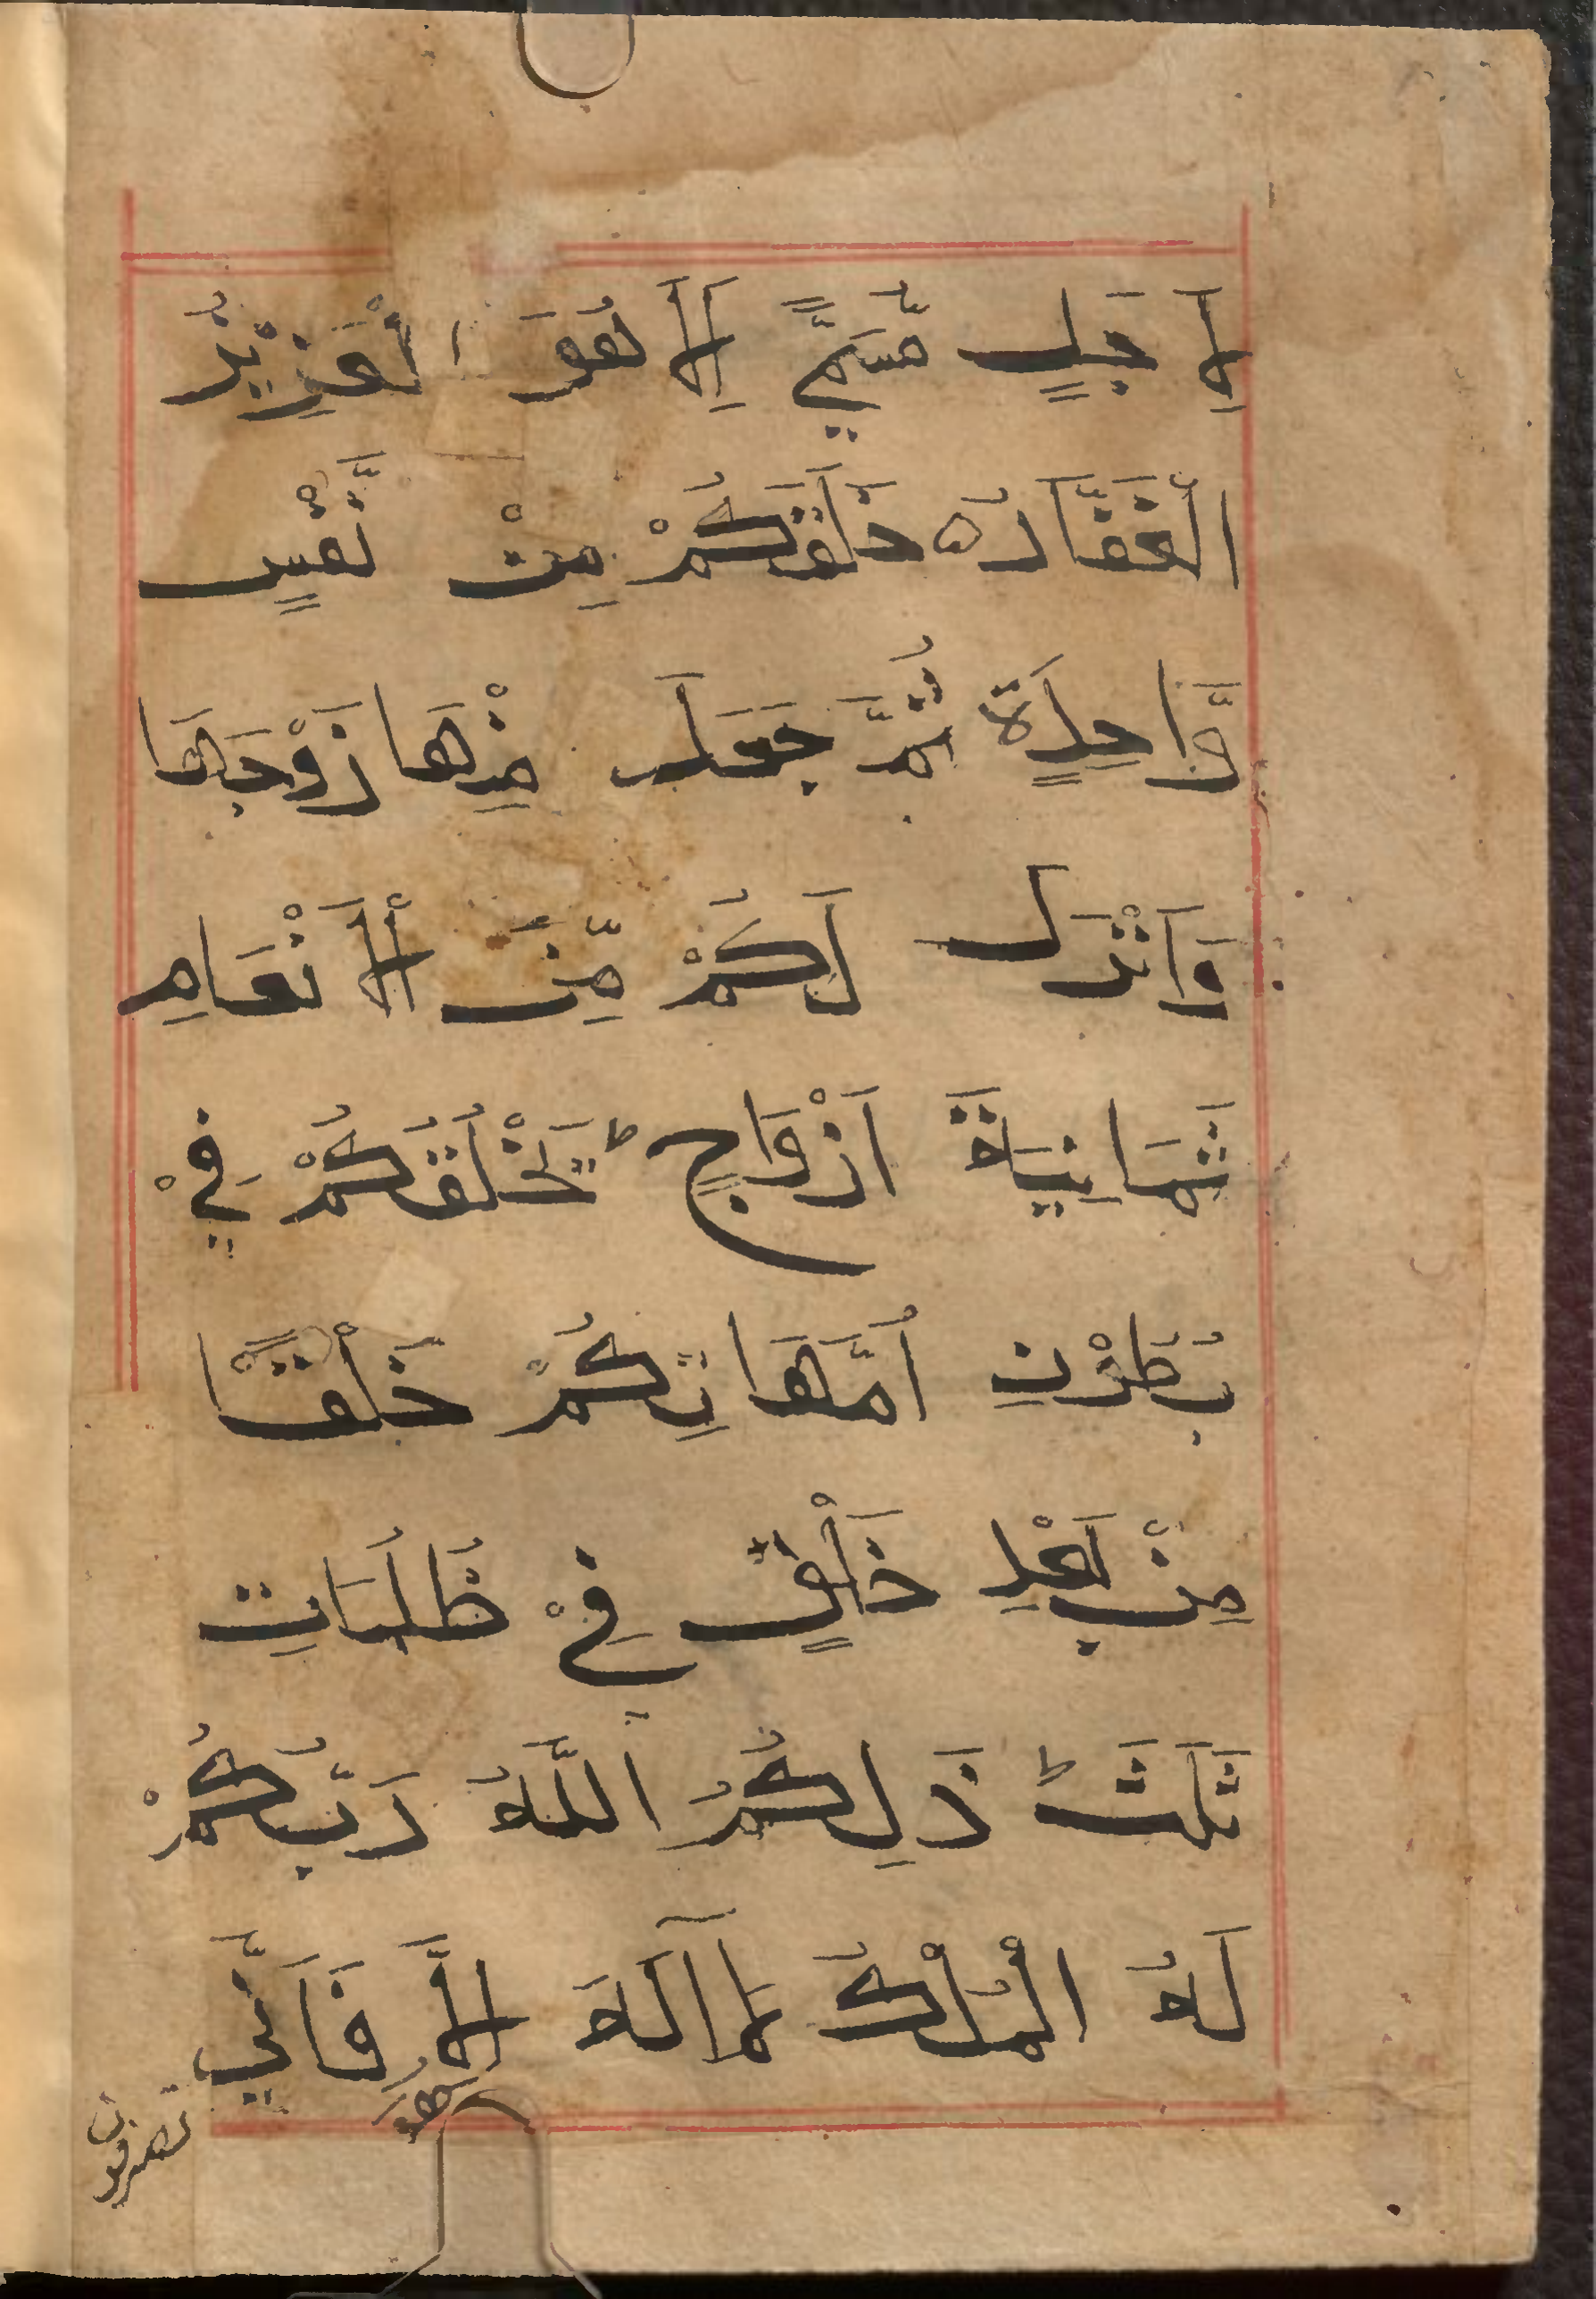 لِاَ جَلٍ مُّسَمًّي اَلَا هُوَ الْعَزِيْزُ
الْغَفَّارُ ه خَلَقَكُمْ مِنْ نَّفْسٍ
وَّاحِدَةٍ ثُمَّ جَعَلَ مِنْهَا زَوْجَهَا
وَاَنْزَلَ لَكُمْ مِّنَ الْاَنْعَامِ
ثَمَانِيَةَ اَزْوَاجٍ ط يَخْلُقُكُمْ فِيْ
بُطُوْنِ اُمَّهَاتِكُمْ خَلْقًا
مِنْ بَعْدِ خَلْقٍ فِيْ ظُلُمَاتٍ
ثَلَثَ ط ذَلِكُمُ اللَّهُ رَبُّكُمْ
لَهُ الْمُلْكُ لَآ اِلَهَ اِلَّا هُوَ فَاَنَّي
تصرفون